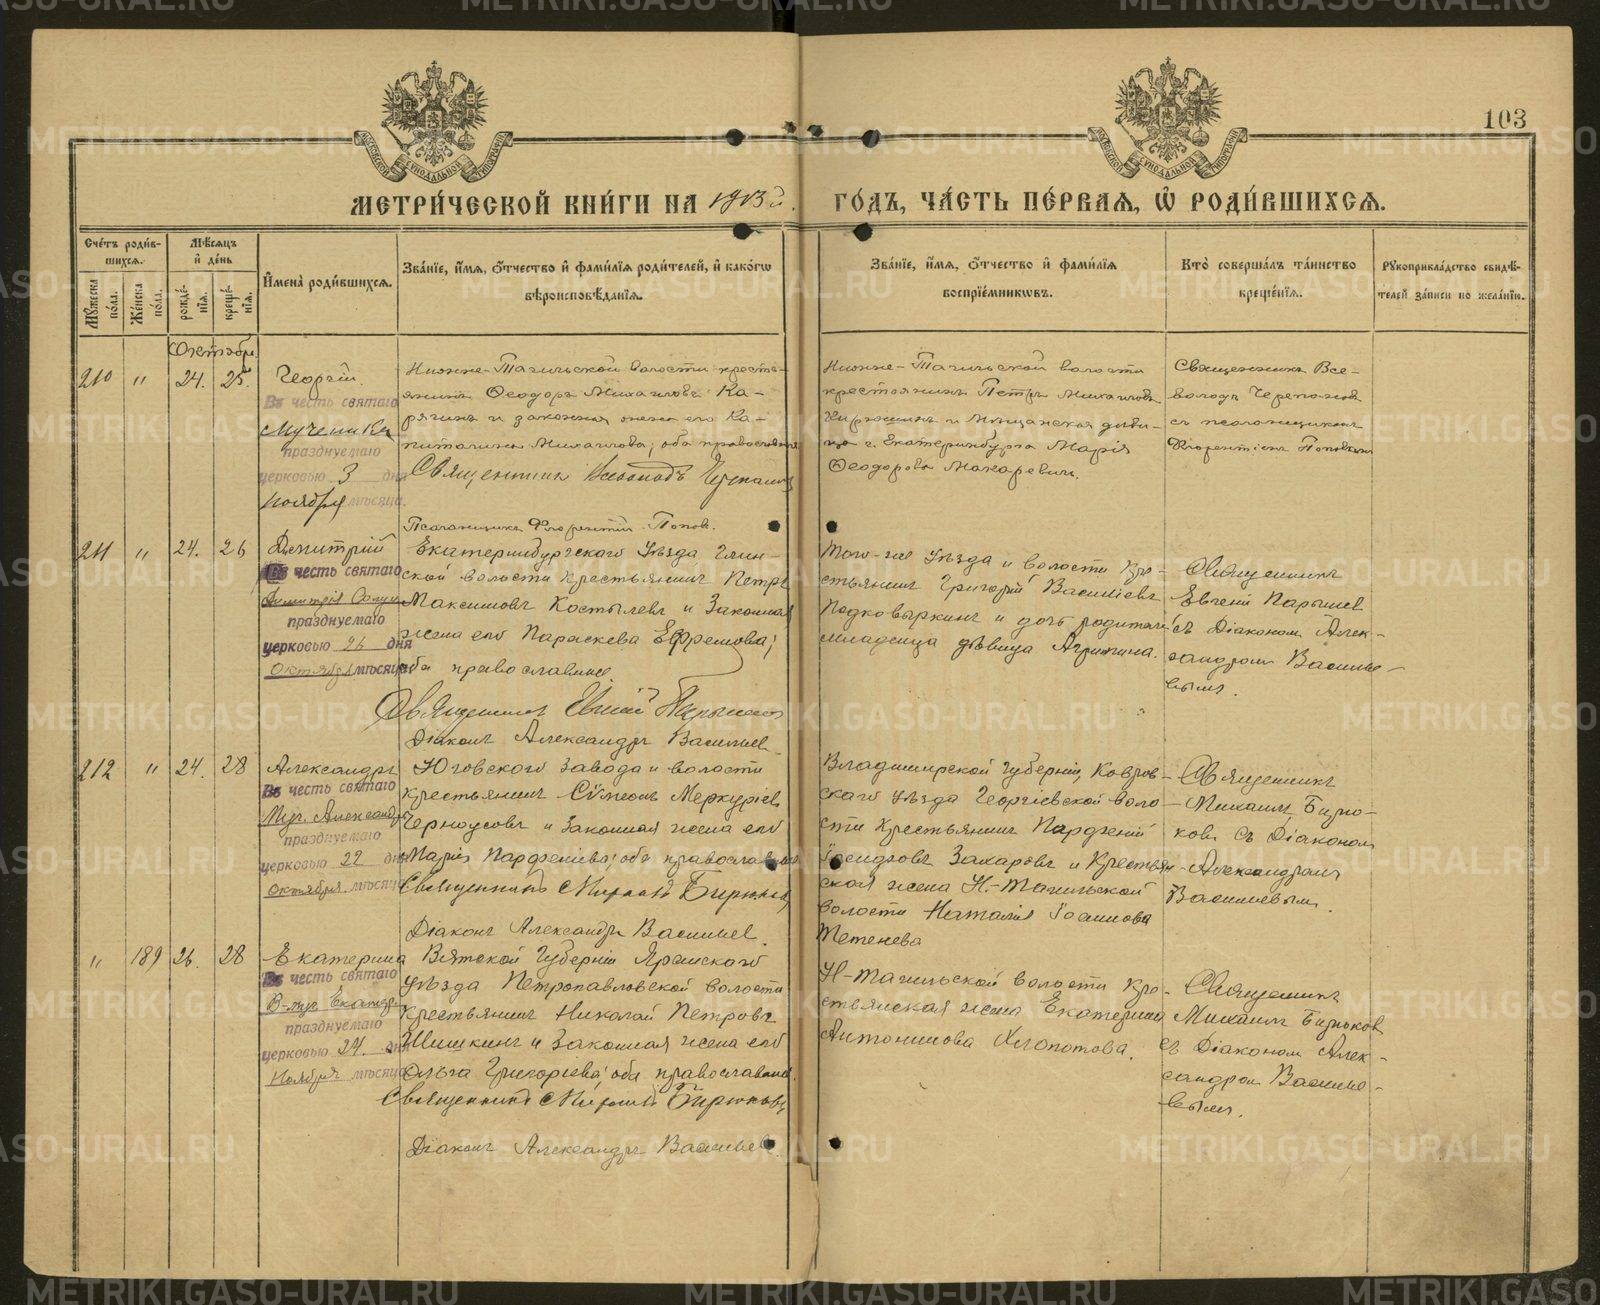 103
МЕТРИ́ЧЕСКОЙ КНИ́ГИ НА 1913й. ГО́ДЪ, ЧА́СТЬ ПЕ́РВАѦ, Ѽ РОДИ́ВШИХСѦ.
Сче́тъ роди́вшихсѧ.
Мꙋ́жеска по́ла.
Же́нска по́ла.
Мѣ́сѧцъ и҆ де́нь
рожде́нїѧ.
креще́нїѧ.
И҆мена̀ роди́вшихсѧ.
Зва́нїе, и҆́мѧ, ѻ҆́тчество и҆ фами́лїѧ роди́телей, и҆ како́гѡ вѣроисповѣ́данїѧ.
Зва́нїе, и҆́мѧ, ѻ҆́тчество и҆ фами́лїѧ воспрїе́мникѡвъ.
Кто̀ соверша́лъ та́инство креще́нїѧ.
Рꙋкоприкла́дство свидѣ́телей за́писи по жела́нїю.
Октябрь
210 " 24. 25.
Георгій.
Въ честь святаго
Мученика
празднуемаго
церковью 3 дня
Ноября мѣсяца
Нижне-Тагильской волости кресть-
янинъ Ѳеодоръ Михаиловъ Ка-
рягинъ и законная жена его Ка-
питолина Михаилова; оба православные
Священникъ Всеволодъ Черепановъ
Псаломщикъ Флорентій Поповъ.
Нижне-Тагильской волости
крестьянинъ Петръ Михаиловъ
и Мѣщанская дѣви-
ца г. Екатеринбурга Марія
Ѳеодорова Макаревичъ.
Священникъ Все-
володъ Черепановъ
съ псаломщикомъ
Флорентіемъ Поповымъ
211 " 24. 26
Димитрій
Въ честь святаго
Димитрія Солун
празднуемаго
церковью 26 дня
Октября мѣсяца
Екатеринбургскаго уѣзда Глин-
ской волости крестьянинъ Петръ
Максимовъ Костылевъ и законная
жена его Параскева Ефремова;
оба православные.
Священникъ Евгеній Парышевъ
Діаконъ Александръ Васильевъ
Того-же уѣзда и волости кре-
стьянинъ Григорій Василіевъ
Подковыркинъ и дочь родителей
младенца дѣвица Агрипина.
Священникъ
Евгеній Парышевъ
съ Діакономъ Алек-
сандромъ Василье-
вымъ.
212 " 24. 28
Александръ
Въ честь святаго
Муч. Александра
празднуемаго
церковью 22 дня
Октября мѣсяца
Юговского завода и волости
крестьянинъ Сѵмеонъ Меркуріевъ
Черноусовъ и законная жена его
Марія Парѳеніева; оба православные
Священникъ Михаилъ Бирюковъ
Діаконъ Александръ Васильевъ.
Владимирской губерніи, Ковров-
скаго уѣзда Георгіевской воло-
сти крестьянинъ Парѳеній
Захаровъ и крестьян-
ская жена Н.-Тагильской
волости Наталія Іоаннова
Тетенева
Священникъ
Михаилъ Бирю-
ковъ съ Діакономъ
Александромъ
Васильевымъ.
" 189 26. 28
Екатерина
Въ честь святаго
В-муч Екатер
празднуемаго
церковью 24 дня
Ноября мѣсяца
Вятской губерніи Яранскаго
уѣзда Петропавловской волости
крестьянинъ Николай Петровъ
Шишкинъ и законная жена его
Ольга Григоріева; оба православные.
Священникъ Михаилъ Бирюковъ
Діаконъ Александръ Васильевъ.
Н-Тагильской волости кре-
стьянская жена Екатерина
Антонинова Хлопотова.
Священникъ
Михаилъ Бирюковъ
съ Діакономъ Алек-
сандромъ Василье-
вымъ.
METRIKI.GASO-URAL.RU